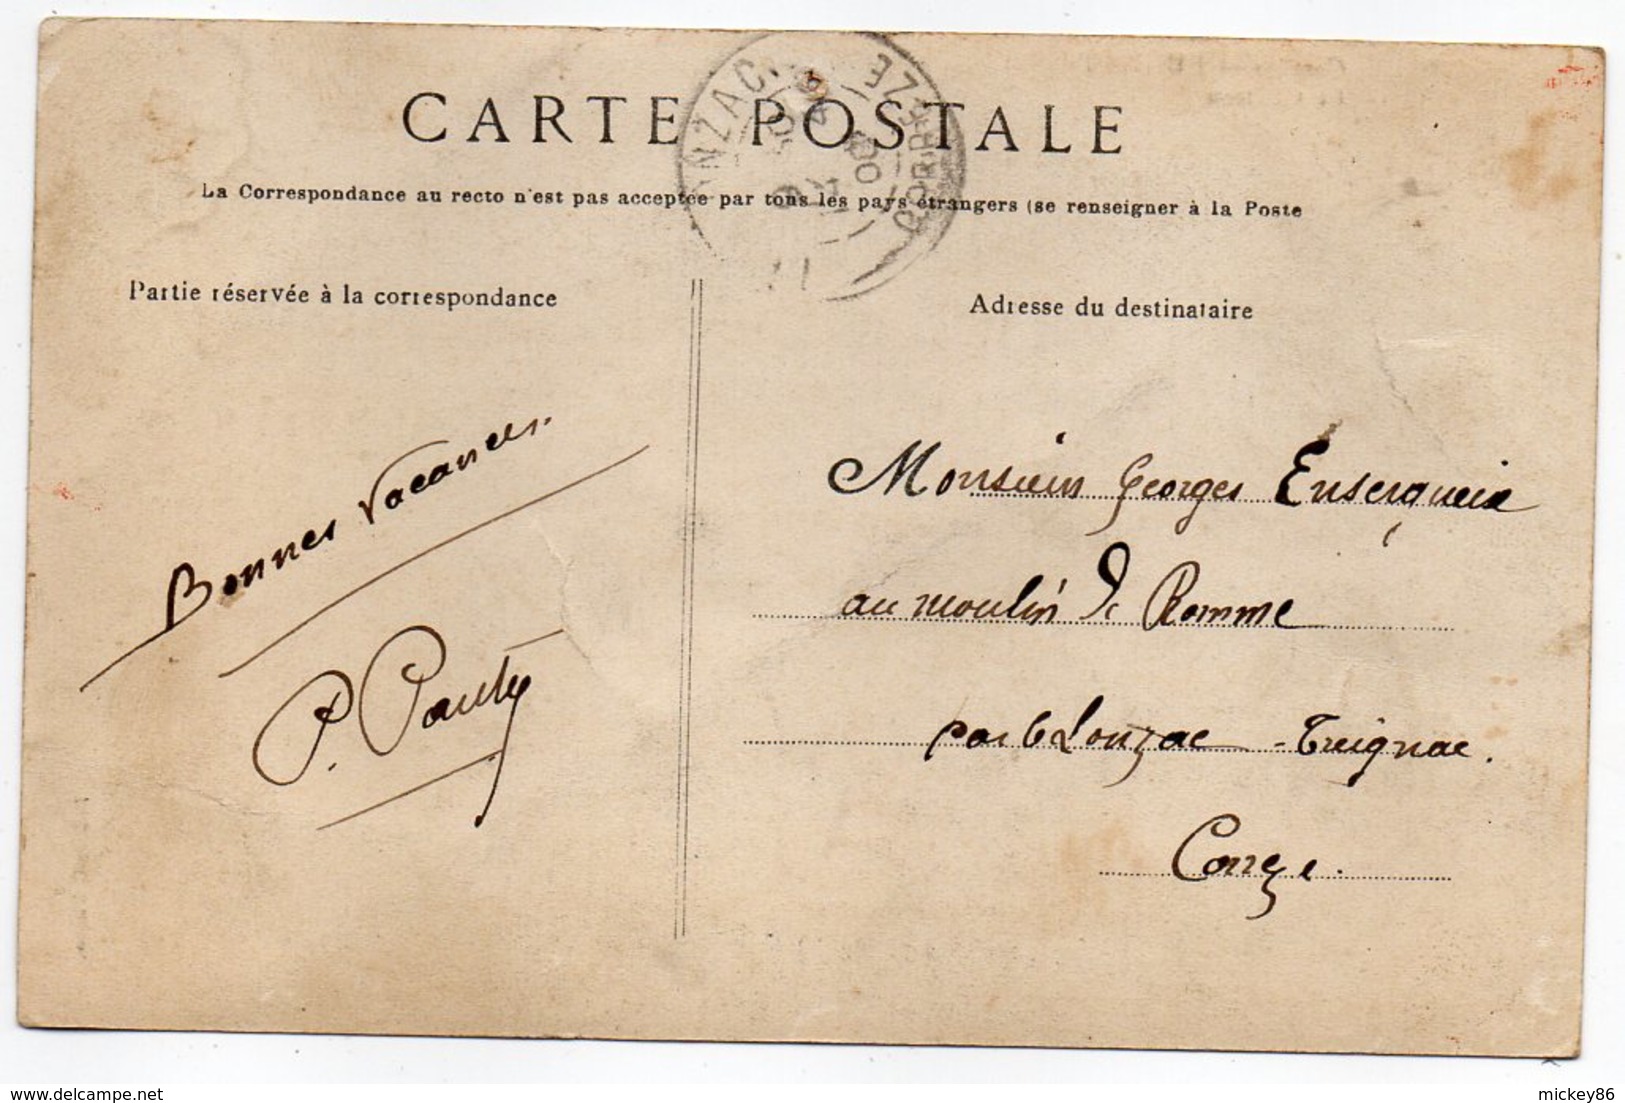 CARTE POSTALE
NZAC CORRÈZE
La Correspondance au recto n'est pas acceptée par tous les pays étrangers (se renseigner à la Poste
Partie réservée à la correspondance
Adresse du destinataire
Bonnes Vacances.
P. Pauty
Monsieur Georges
au moulin de Romme
par Lonzac - Treignac.
Corrèze.
mickey86